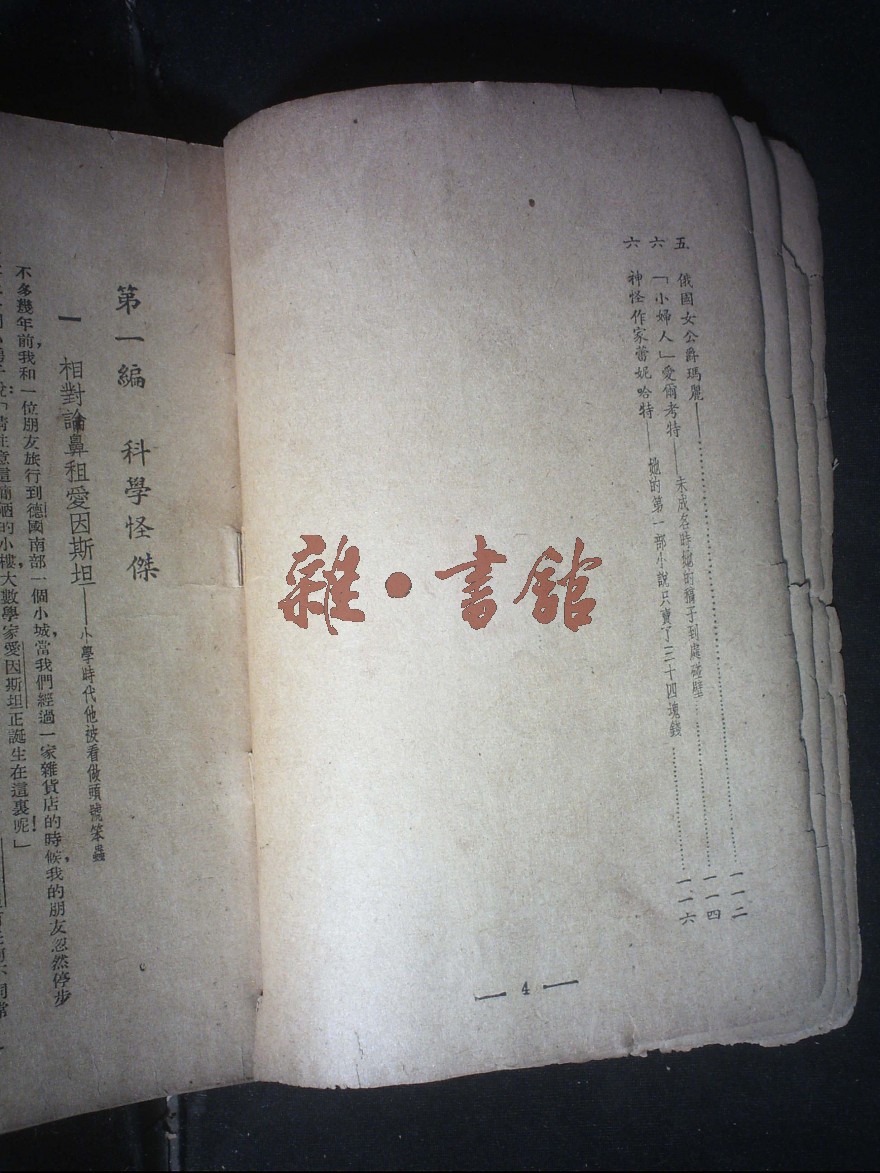 五 俄國女公爵瑪麗——………一一二
六 「小婦人」愛爾考特——未成名時她的稿子到處碰壁………一一四
六 神怪作家蕾妮哈特——她的第一部小說只賣了三十四塊錢………一一六
— 4 —
雜·書館
第一編 科學怪傑
一 相對論鼻祖愛因斯坦——小學時代他被看做頭號笨蟲
不多幾年前,我和一位朋友旅行到德國南部一個小城,當我們經過一家雜貨店的時候,我的朋友忽然停步
:「請注意這簡陋的小樓,大數學家愛因斯坦正誕生在這裏呢!」